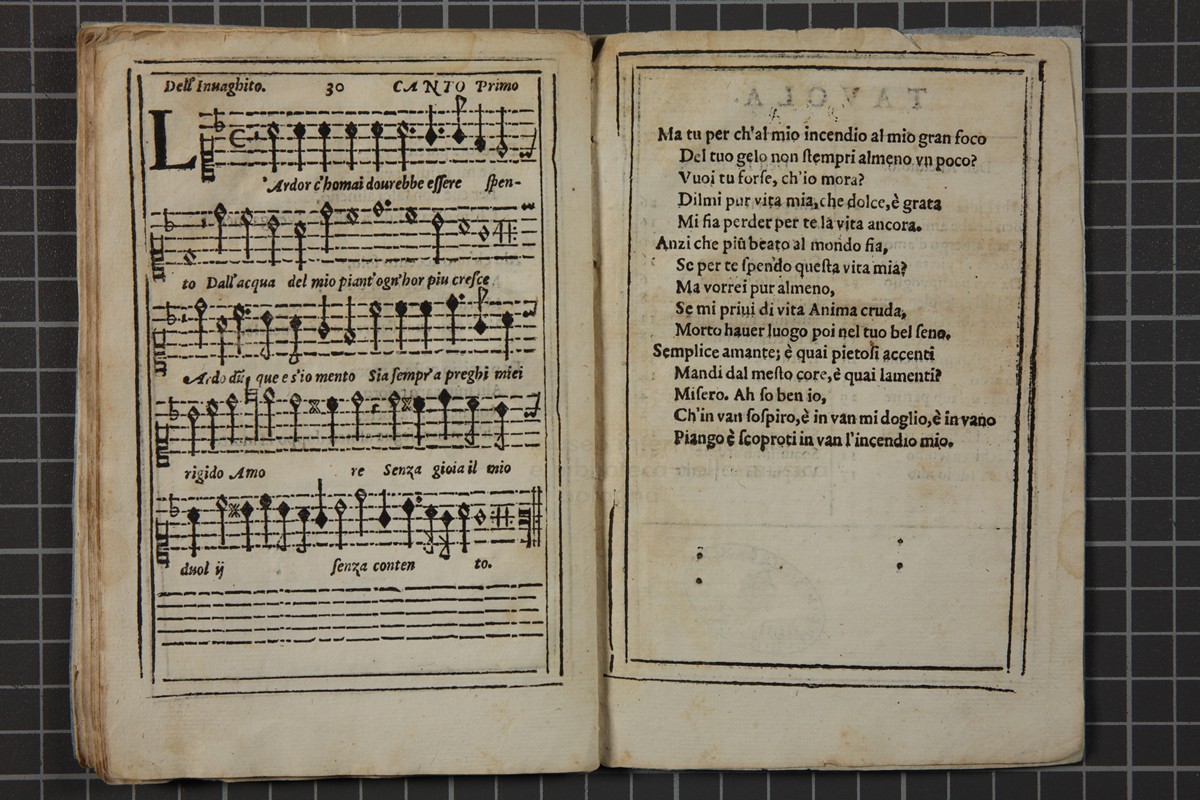 Dell'Inuaghito. 30 CANTO Primo
L
'Ardor c'homai dourebbe eſſere ſpen-
to Dall'acqua del mio piant'ogn'hor piu creſce
Ardo dũ que e s'io mento Sia ſempr'a preghi miei
rigido Amo re Senza gioia il mio
duol ij ſenza conten to.
TAVOLA.
Ma tu per ch'al mio incendio al mio gran foco
Del tuo gelo non ſtempri almeno vn poco?
Vuoi tu forſe, ch'io mora?
Dilmi pur vita mia, che dolce, è grata
Mi fia perder per te la vita ancora.
Anzi che più beato al mondo fia,
Se per te ſpendo queſta vita mia?
Ma vorrei pur almeno,
Se mi priui di vita Anima cruda,
Morto hauer luogo poi nel tuo bel ſeno.
Semplice amante; è quai pietoſi accenti
Mandi dal meſto core, è quai lamenti?
Miſero. Ah ſo ben io,
Ch'in van ſoſpiro, è in van mi doglio, è in vano
Piango è ſcoproti in van l'incendio mio.